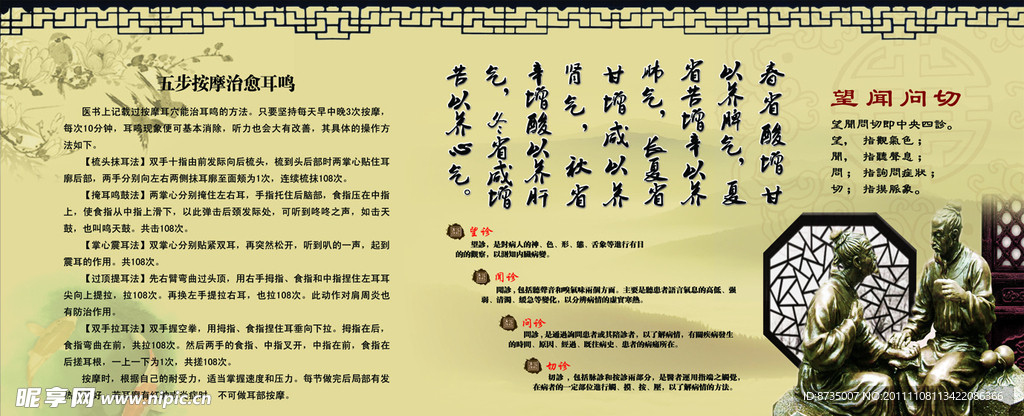 五步按摩治愈耳鸣
医书上记载过按摩耳穴能治耳鸣的方法。只要坚持每天早中晚3次按摩，
每次10分钟，耳鸣现象便可基本消除，听力也会大有改善，其具体的操作方
法如下。
【梳头抹耳法】双手十指由前发际向后梳头，梳到头后部时两掌心贴住耳
廓后部，两手分别向左右两侧抹耳廓至面颊为1次，连续梳抹108次。
【掩耳鸣鼓法】两掌心分别掩住左右耳，手指托住后脑部，食指压在中指
上，使食指从中指上滑下，以此弹击后颈发际处，可听到咚咚之声，如击天
鼓，也叫鸣天鼓。共击108次。
【掌心震耳法】双掌心分别贴紧双耳，再突然松开，听到叭的一声，起到
震耳的作用。共108次。
【过顶提耳法】先右臂弯曲过头顶，用右手拇指、食指和中指捏住左耳耳
尖向上提拉，拉108次。再换左手提拉右耳，也拉108次。此动作对肩周炎也
有防治作用。
【双手拉耳法】双手握空拳，用拇指、食指捏住耳垂向下拉。拇指在后，
食指弯曲在前，共拉108次。然后两手的食指、中指叉开，中指在前，食指在
后搓耳根，一上一下为1次，共搓108次。
按摩时，根据自己的耐受力，适当掌握速度和压力。每节做完后局部有发
不可做耳部按摩。
春省酸增甘
以养脾气，夏
省苦增辛以养
肺气，长夏省
甘增咸以养
肾气，秋省
辛增酸以养肝
气，冬省咸增
苦以养心气。
望闻问切
望聞問切即中央四診。
望，指觀氣色；
聞，指聽聲息；
問；指詢問症狀；
切；指摸脈象。
望诊
望診，是對病人的神、色、形、態、舌象等進行有目
的的觀察，以測知内臟病變。
闻诊
聞診，包括聽聲音和嗅氣味兩個方面。主要是聽患者語言氣息的高低、强
弱、清濁、緩急等變化，以分辨病情的虛實寒熱。
问诊
問診，是通過詢問患者或其陪診者，以了解病情，有關疾病發生
的時間、原因、經過、既往病史、患者的病痛所在。
切诊
切診，包括脉診和按診兩部分，是醫者運用指端之觸覺，
在病者的一定部位進行觸、摸、按、壓，以了解病情的方法。
昵享网 www.nipic.cn
ID:8735007 NO:20111108113422086366